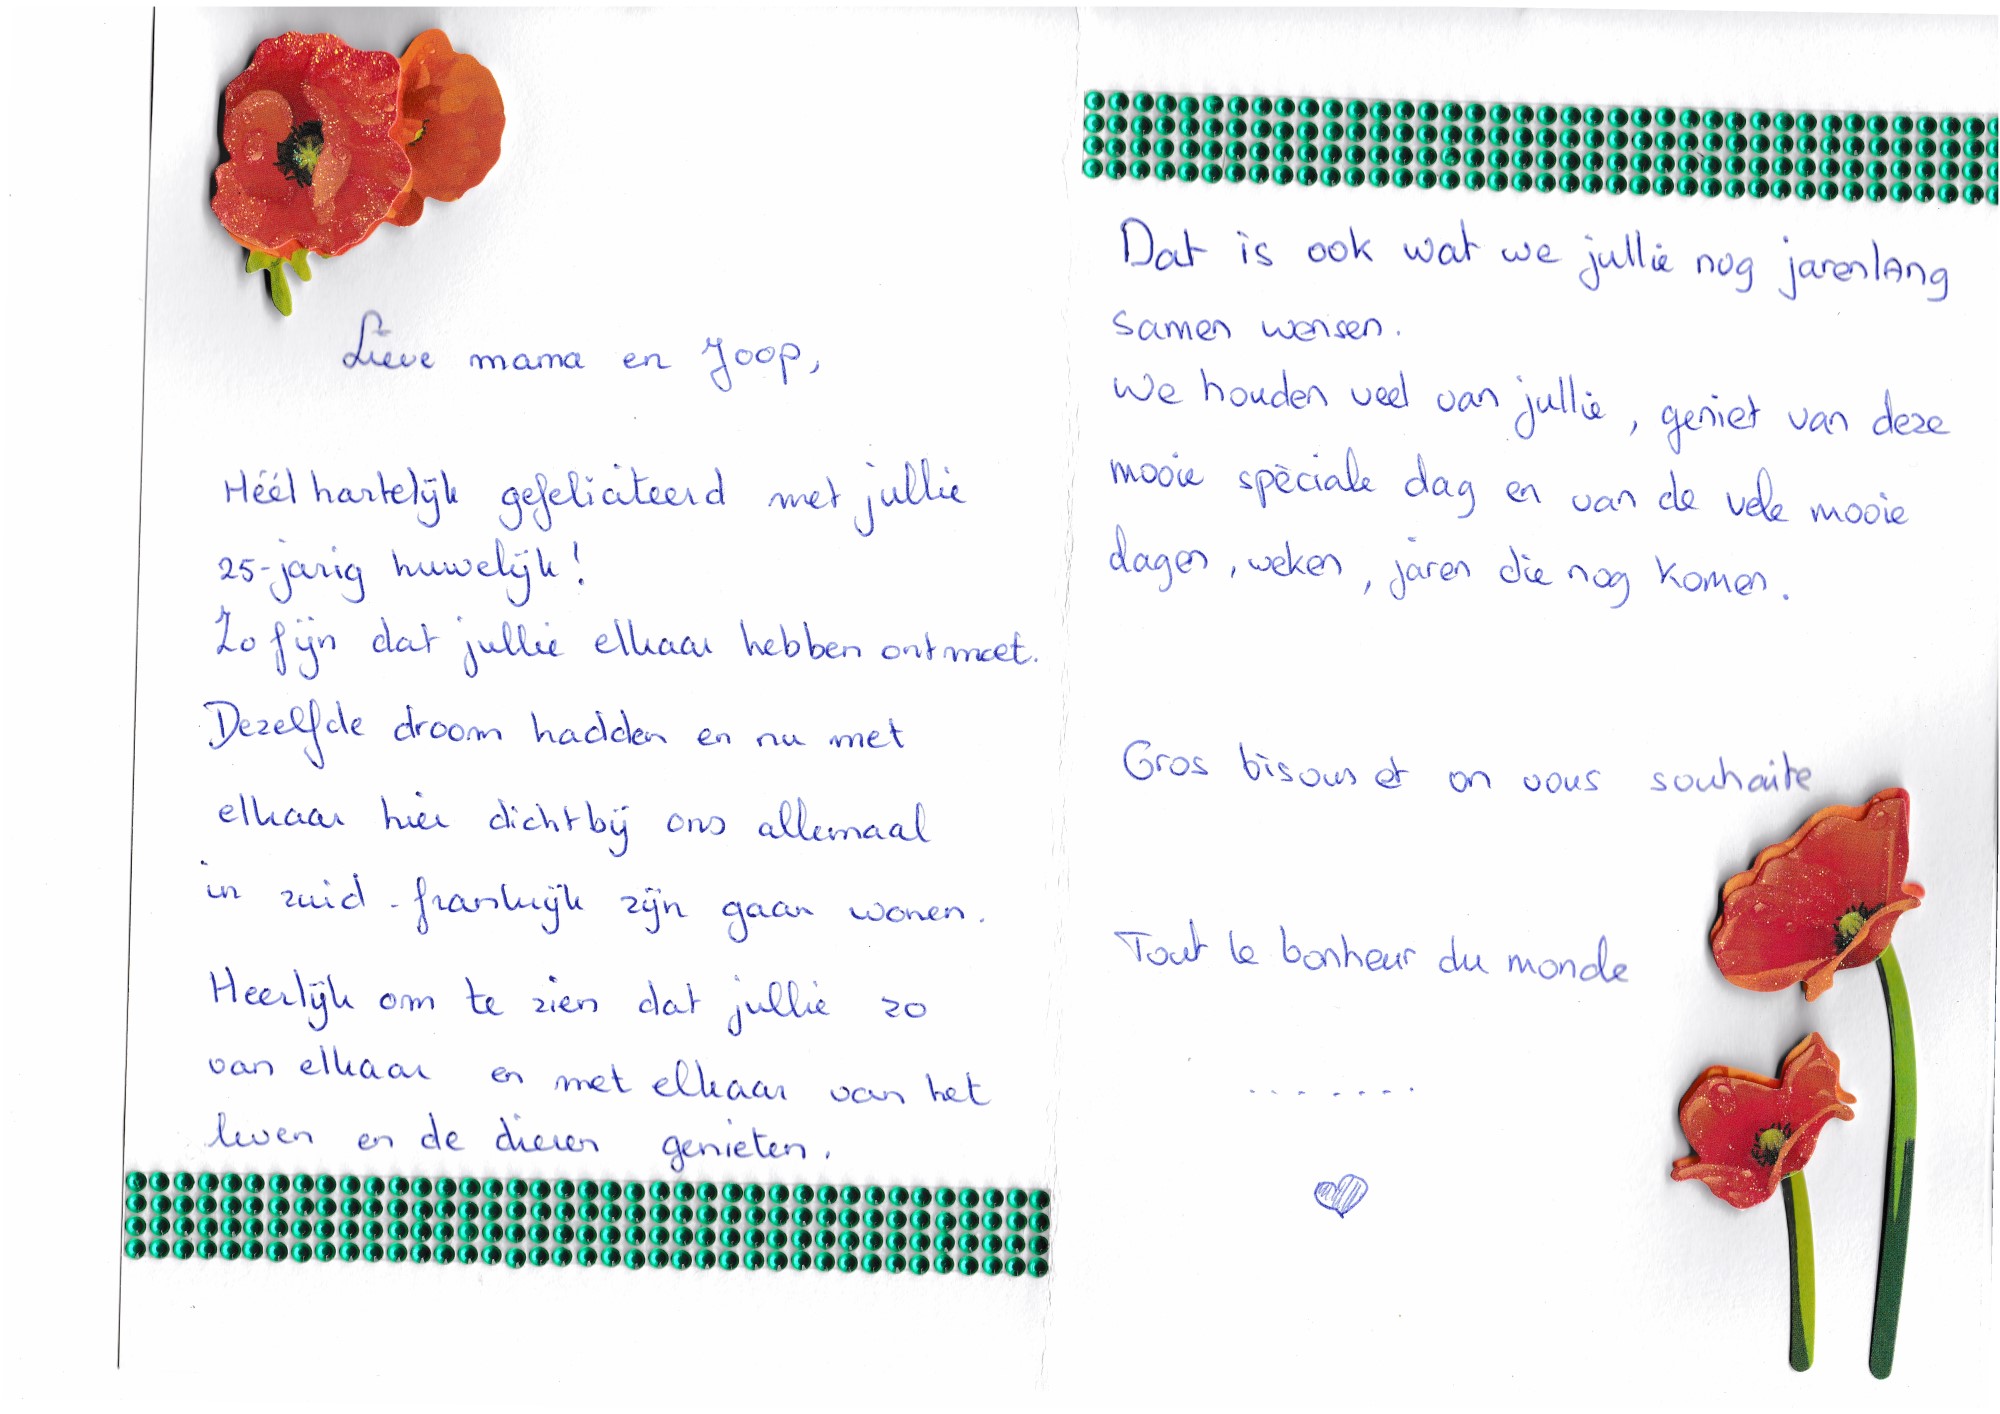 Lieve mama en Joop,
Héél hartelijk gefeliciteerd met jullie
25-jarig huwelijk!
Zo fijn dat jullie elkaar hebben ontmoet.
Dezelfde droom hadden en nu met
elkaar hier dichtbij ons allemaal
in zuid-frankrijk zijn gaan wonen.
Heerlijk om te zien dat jullie zo
van elkaar en met elkaar van het
leven en de dieren genieten.
Dat is ook wat we jullie nog jarenlang
samen wensen.
We houden veel van jullie, geniet van deze
mooie spèciale dag en van de vele mooie
dagen, weken, jaren die nog komen.
Gros bisous et on vous souhaite
Tout le bonheur du monde
........